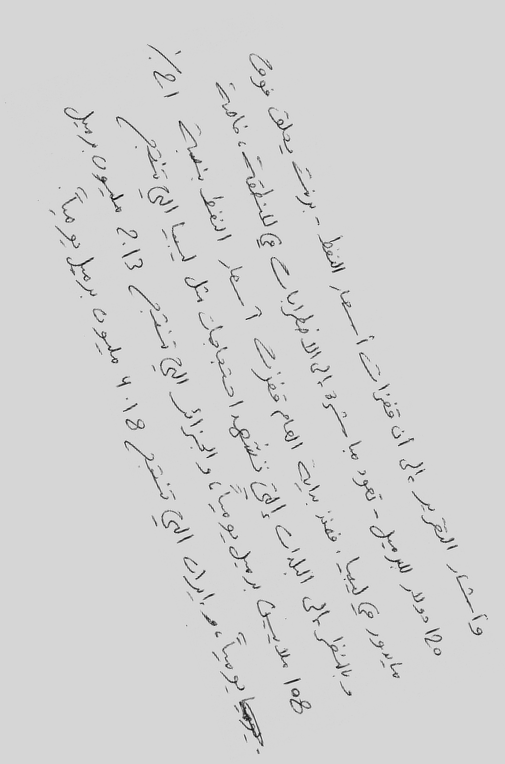 وأشار التقرير إلى أن قفزات أسعار النفط - برنت يحلق فوق
120 دولار للبرميل - تعود مباشرة إلى الاضطرابات في المنطقة، خاصة
ما يدور في ليبيا، فمنذ بداية العام قفزت أسعار النفط بنسبة 21%
وبالنظر إلى البلدان التي تشهد احتجاجات مثل ليبيا التي تنتج
1.08 ملايين برميل يومياً، والجزائر التي تنتج 2.13 مليون برميل
يومياً، وإيران التي تنتج 4.18 مليون برميل يومياً.